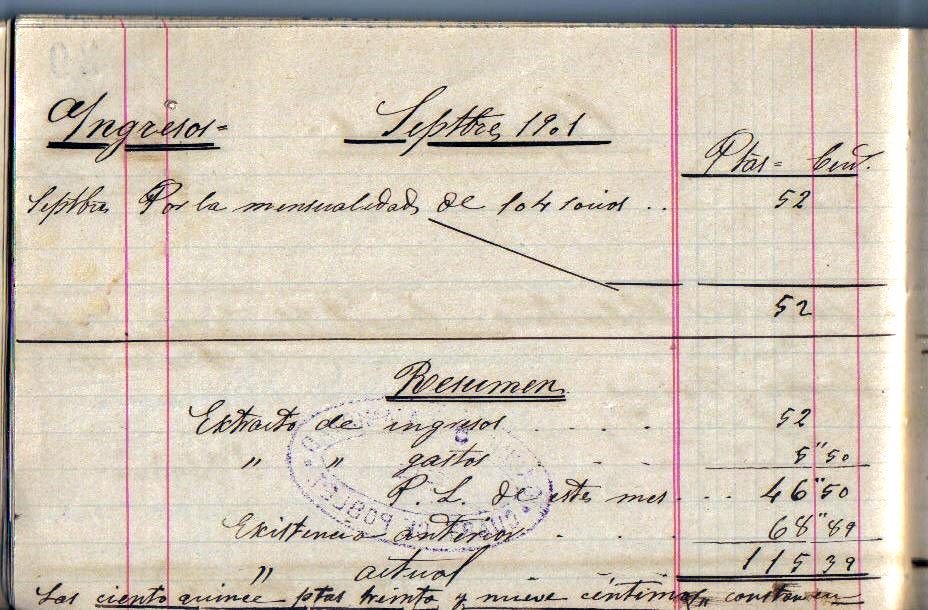 Ingresos= Septbre 1901
Ptas= Cent.
Septbre Por la mensualidad de 104 socios .. 52
52
Resumen
Extracto de ingresos . . . . 52
" " gastos . . 5"50
P. L. de este mes . . . 46"50
Existencia anterior . . . 68"89
" actual 115 39
Las ciento quince ptas treinta y nueve céntimos